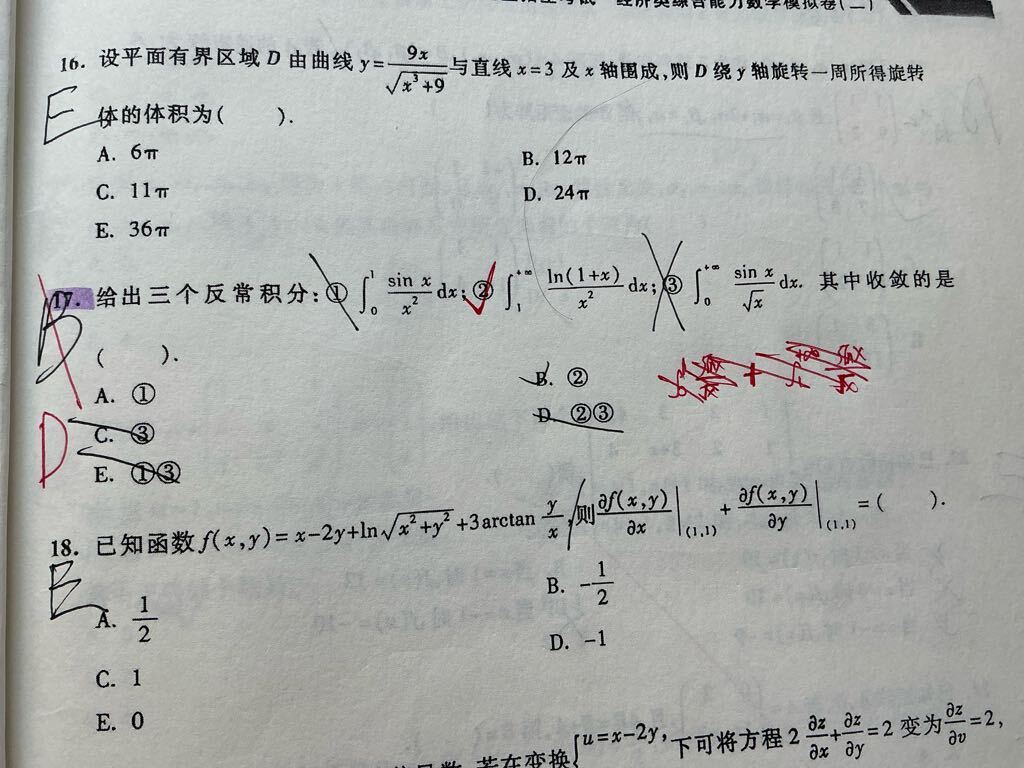 经济类综合能力数学模拟卷(二)
16. 设平面有界区域 D 由曲线 y=9x/√(x³+9) 与直线 x=3 及 x 轴围成,则 D 绕 y 轴旋转一周所得旋转
E 体的体积为(    ).
A. 6π B. 12π
C. 11π D. 24π
E. 36π
17. 给出三个反常积分:①∫₀¹ sin x/x² dx;②∫₁^{+∞} ln(1+x)/x² dx;③∫₀^{+∞} sin x/√x dx. 其中收敛的是
B (    ).
A. ① B. ②
C. ③ D. ②③
D
E. ①③
18. 已知函数 f(x,y)=x-2y+ln√(x²+y²)+3arctan y/x,则 ∂f(x,y)/∂x|(1,1) + ∂f(x,y)/∂y|(1,1) =(    ).
E
A. 1/2 B. -1/2
C. 1 D. -1
E. 0
若在变换{u=x-2y, 下可将方程 2 ∂z/∂x+∂z/∂y=2 变为 ∂z/∂v=2,